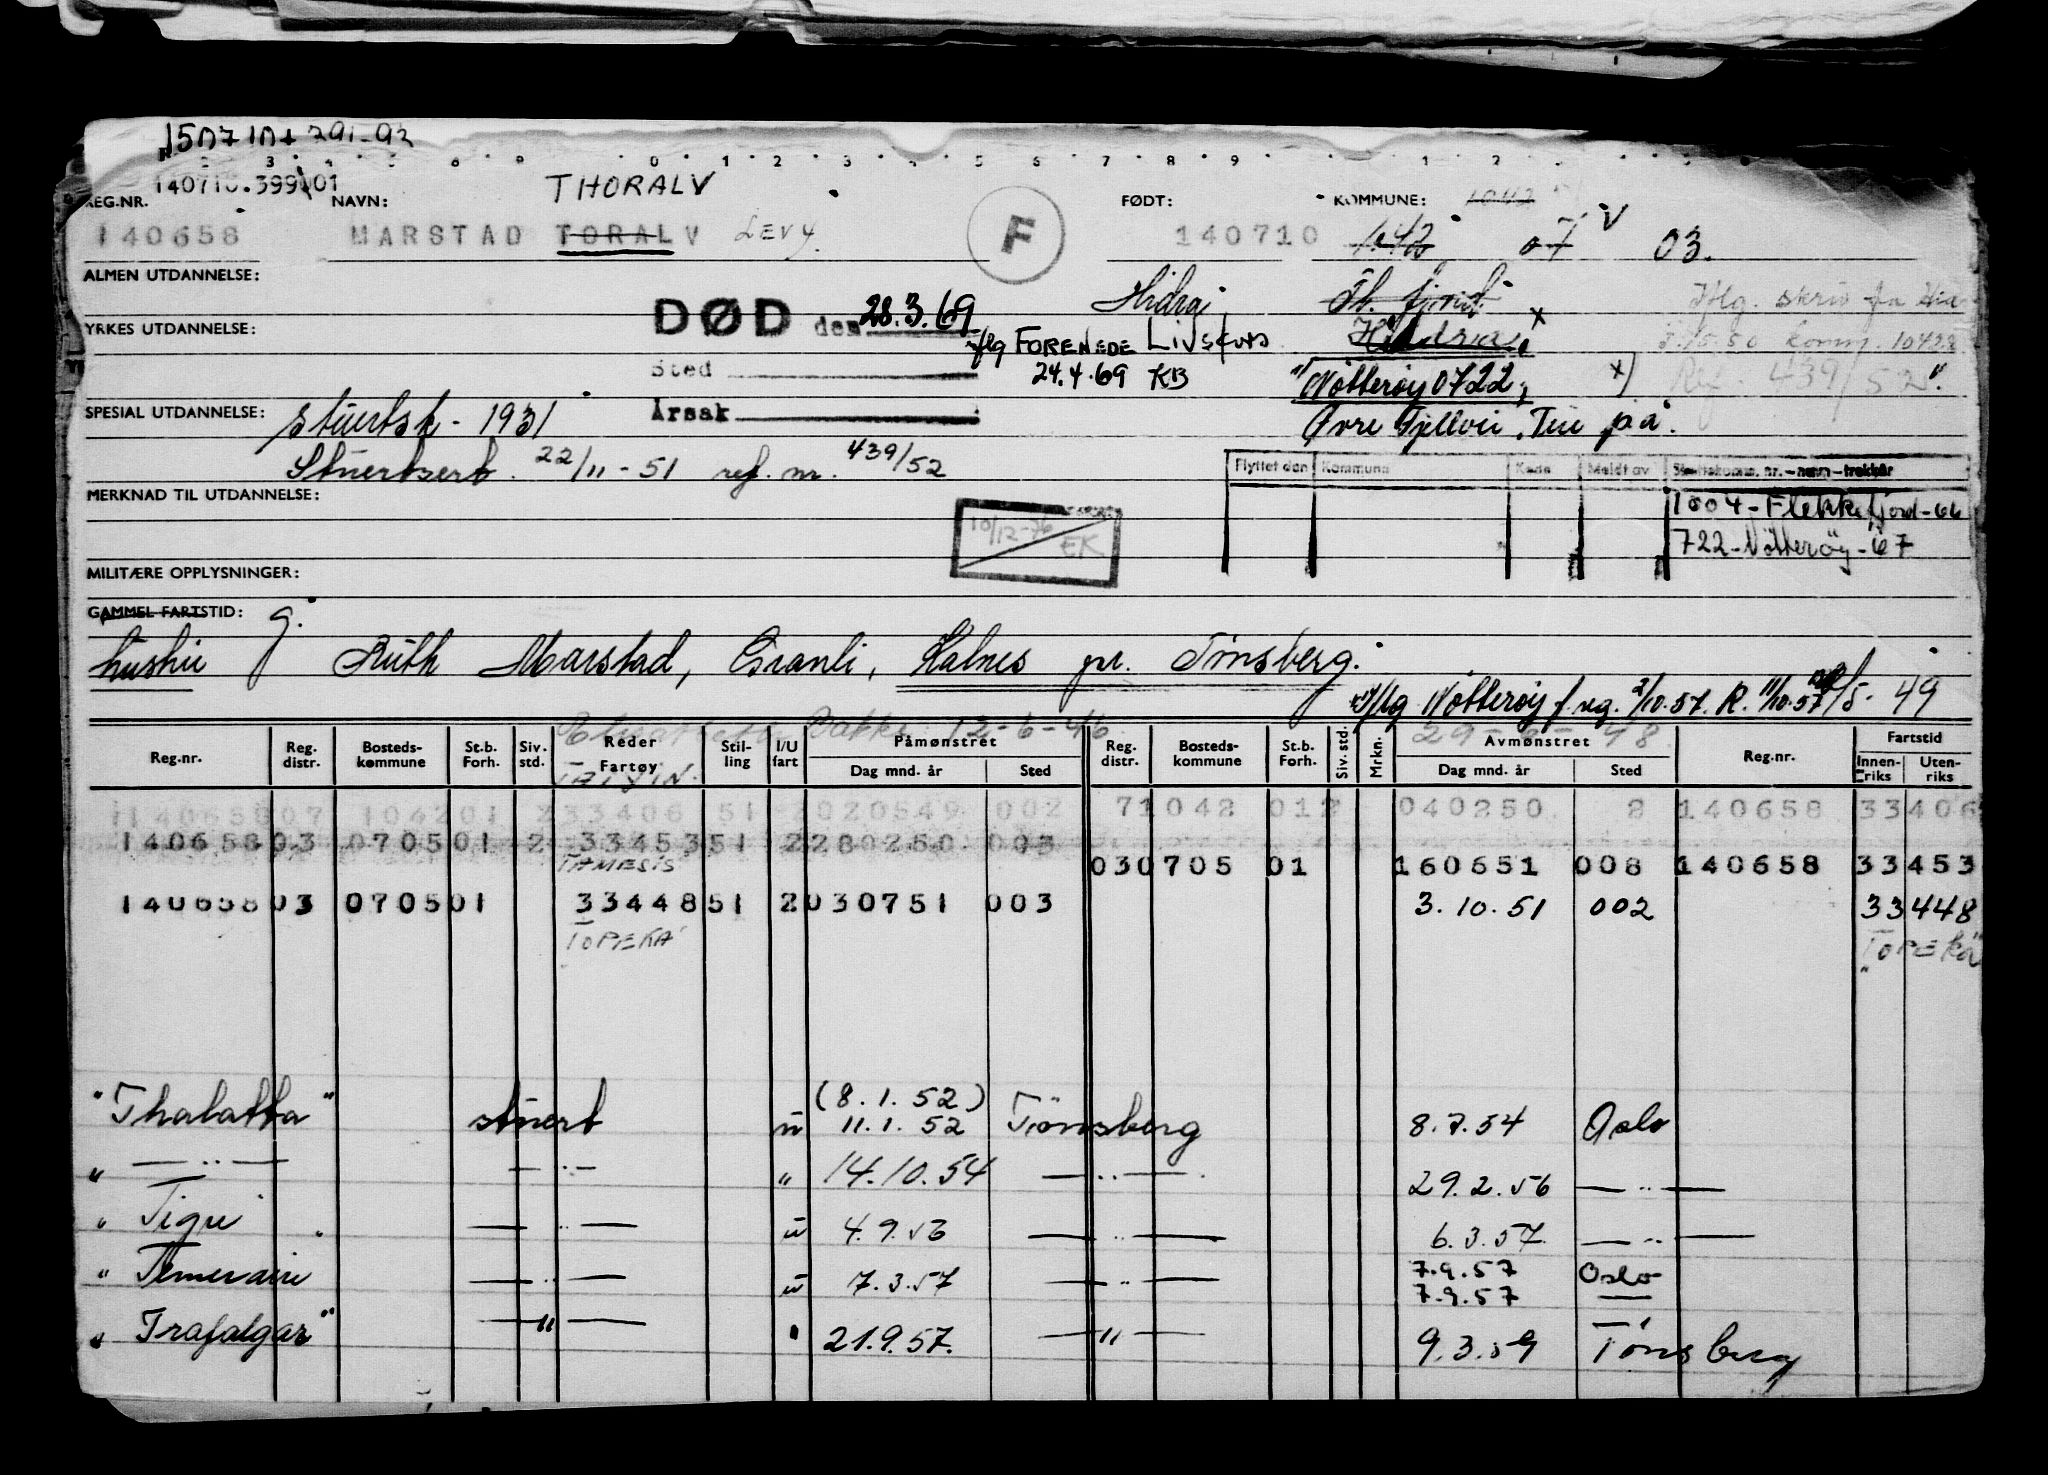 140710.399 01
THORALV
REG.NR. NAVN: FØDT: KOMMUNE: 1042
140658 MARSTAD TORALV LEVY F 140710 1042 07 V 03.
ALMEN UTDANNELSE:
DØD den 28.3.69 Hidra Hidra x
YRKES UTDANNELSE:
iflg FORENEDE
24.4.69 KB
Sted
Nøtterøy 0722, x)
Ref. 439/52
SPESIAL UTDANNELSE: stuertsk. 1931
Årsak
Stuertsert. 22/11-51 ref. nr. 439/52
Flyttet den Kommune Kode Meldt av
MERKNAD TIL UTDANNELSE:
1004-Flekkefjord-66
722-Nøtterøy-67
10/12-56 EK
MILITÆRE OPPLYSNINGER:
GAMMEL FARTSTID: g.
hustru Ruth Marstad, Granli, Kalnes pr. Tønsberg.
Iflg Nøtterøy f.reg. 2/10.57. R. 11/10.57 /5-49
12-6-46 29- 48
Reg.nr. Reg. distr. Bosteds-kommune St.b. Forh. Siv. std. Reder Fartøy Stil-ling I/U fart Påmønstret Dag mnd. år Sted Reg. distr. Bosteds-kommune St.b. Forh. Siv. std. Mrkn. Avmønstret Dag mnd. år Sted Reg.nr. Fartstid Innen-riks Uten-riks
14065807 104201 2 33406 51 2 020549 002 7 1042 012 040250 2 140658 33406
14065803 070501 2 33453 51 2 280250 003
TAMESIS 030705 01 160651 008 140658 33453
14065803 070501 33448 51 2 030751 003 3.10.51 002 33448
TOPEKA "TOPEKA"
(8.1.52)
"Thalatta" stuert u 11.1.52 Tønsberg 8.7.54 Oslo
" — " — — " — " 14.10.54 — " — 29.2.56 — " —
" Tigre " — " — u 4.9.56 — " — 6.3.57 — " —
" Temeraire — " — u 7.3.57 — " — 7.9.57 Oslo
7.9.57 —
" Trafalgar" — " — " 21.9.57. — " — 9.3.59 Tønsberg